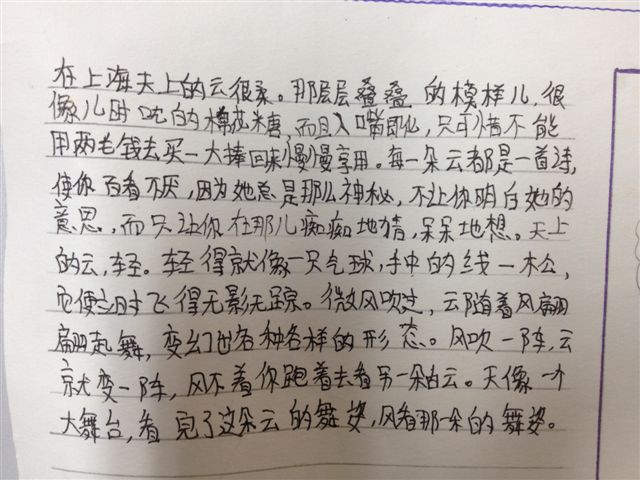 在上海天上的云很柔。那层层叠叠的模样儿,很
像儿时吃的棉花糖,而且入嘴即化,只可惜不能
用两毛钱去买一大捧回来慢慢享用。每一朵云都是一首诗,
使你百看不厌,因为她总是那么神秘,不让你明白她的
意思,而只让你在那儿痴痴地猜,呆呆地想。天上
的云,轻。轻得就像一只气球,手中的线一松,
而便立时飞得无影无踪。微风吹过,云随着风翩
翩起舞,变幻出各种各样的形态。风吹一阵,云
就变一阵,风不着你跑着去看另一朵白云。天像一个
大舞台,看完了这朵云的舞姿,风看那一朵的舞姿。